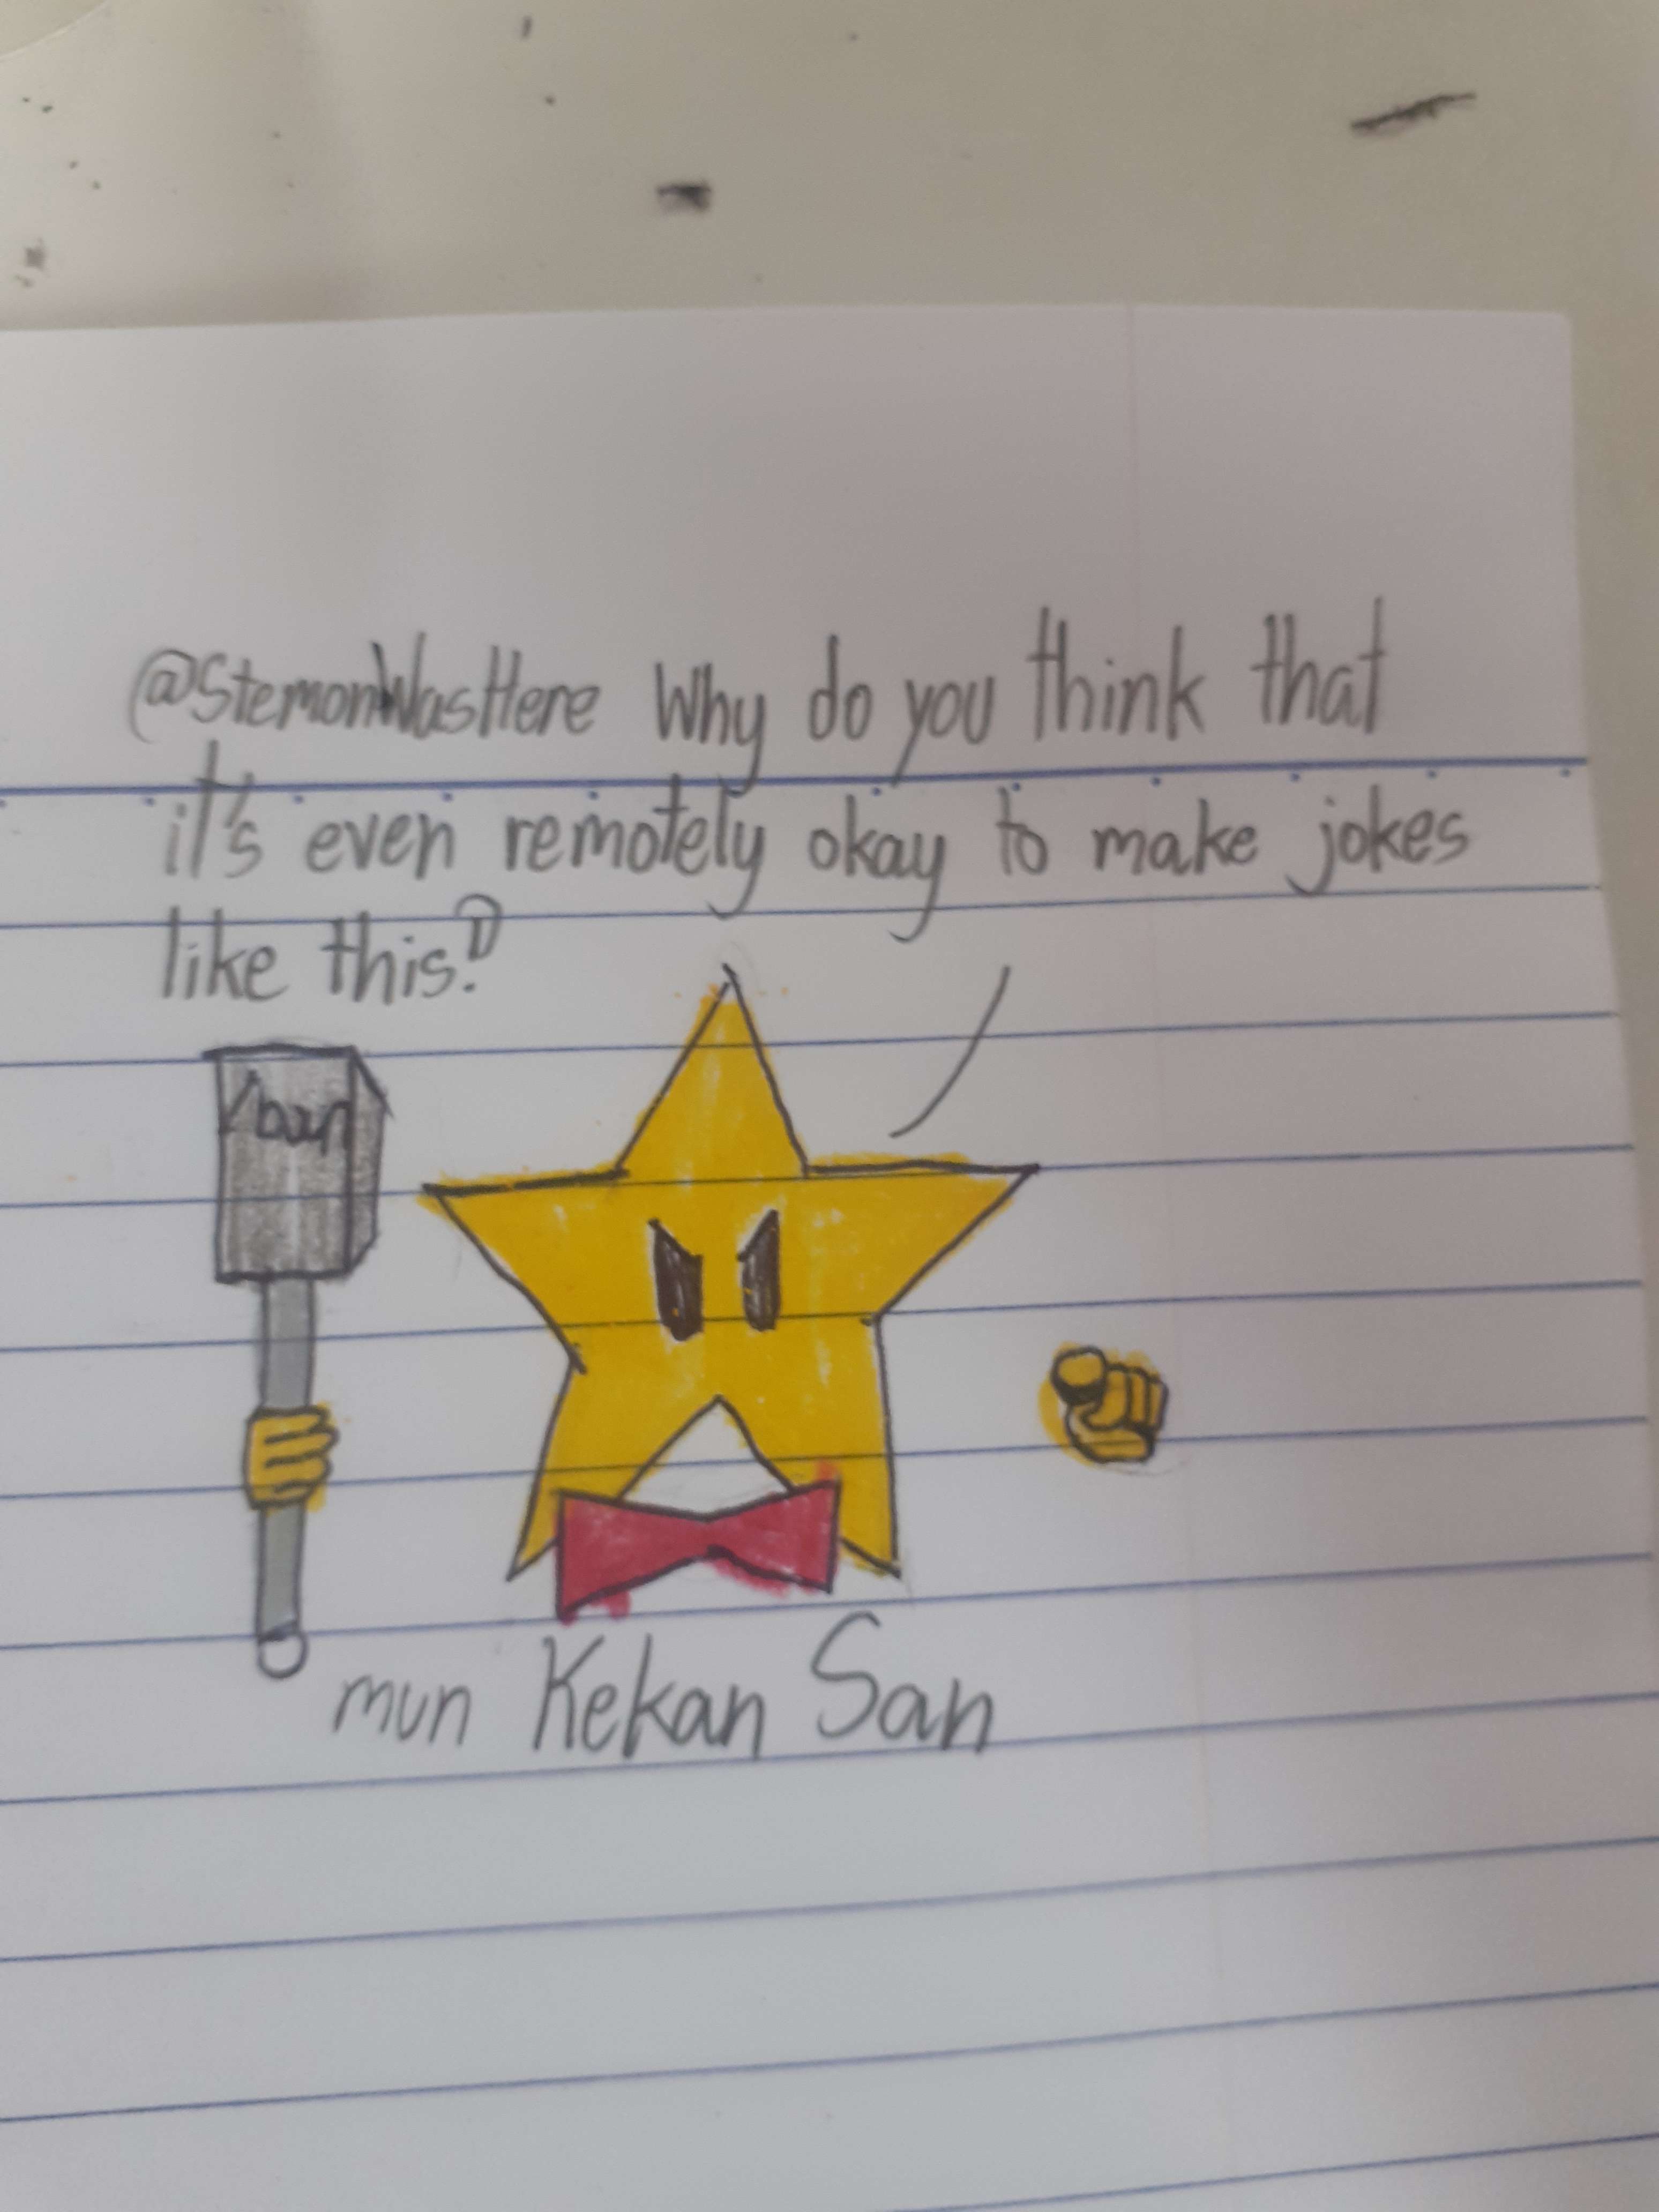 @StemonWasHere Why do you think that
it's even remotely okay to make jokes
like this?!
/ban
mun Kekan San